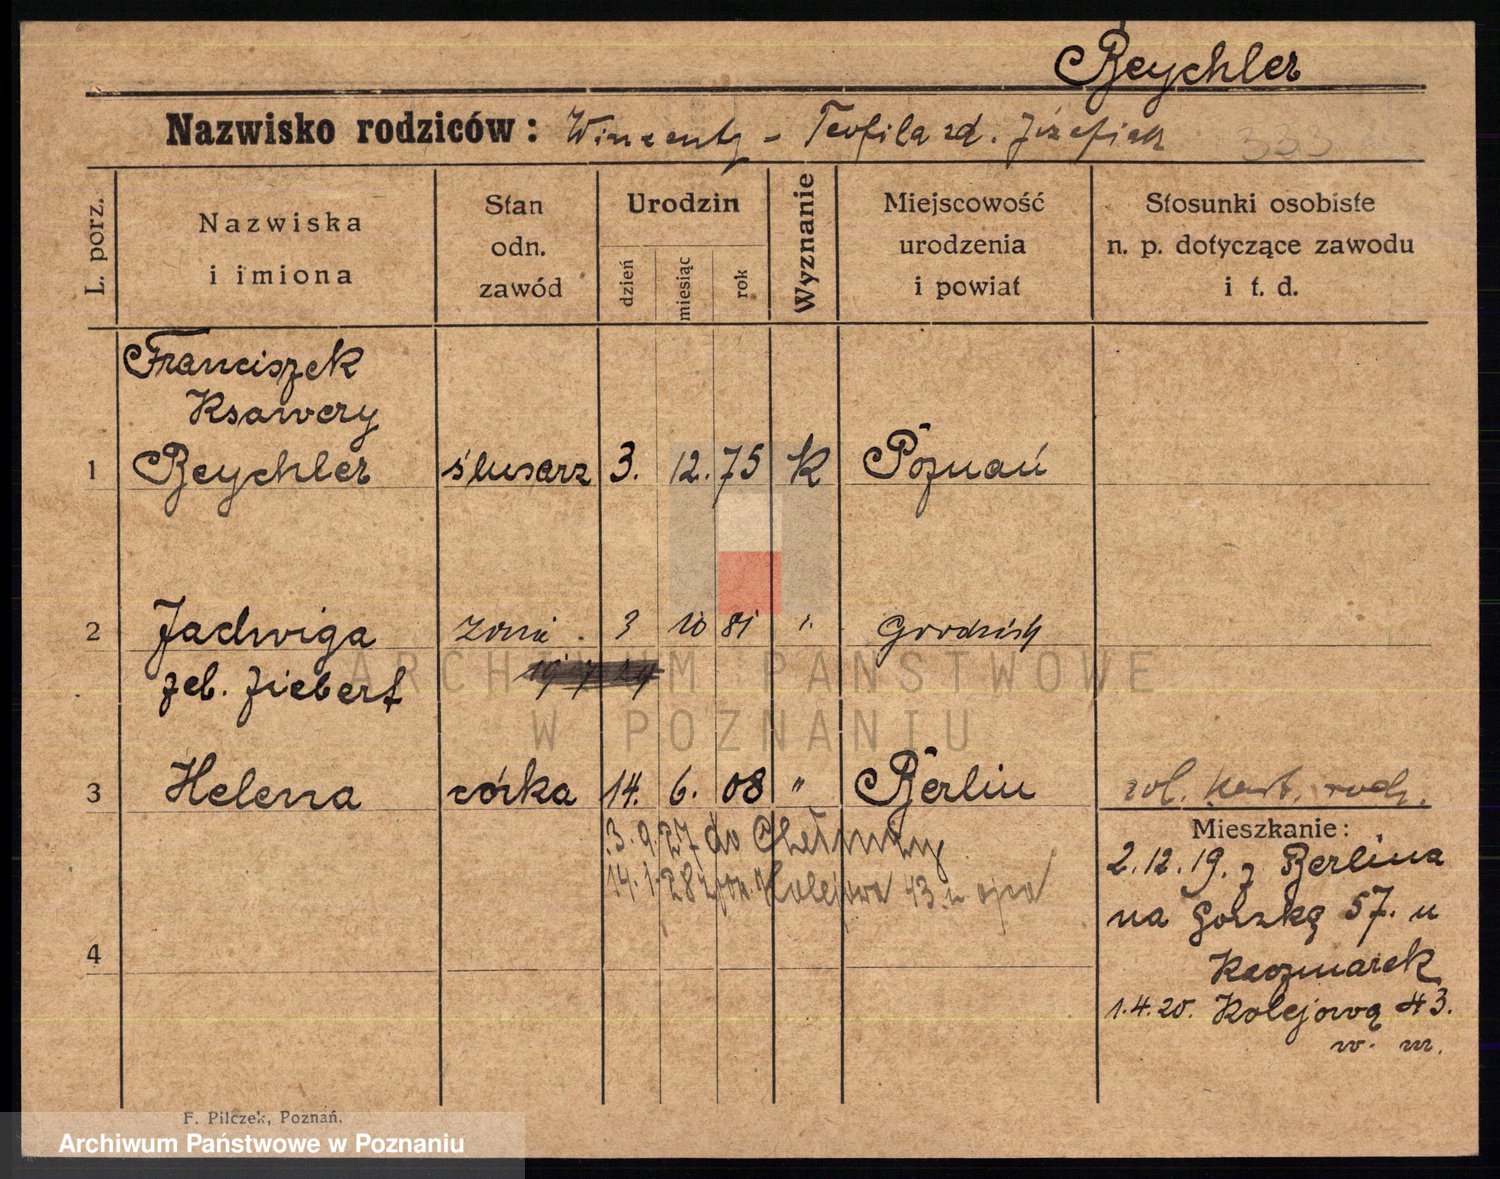 Beychler
Nazwisko rodziców: Wincenty - Teofila zd. Józefiak
L. porz.
Nazwiska
i imiona
Stan
odn.
zawód
Urodzin
dzień
miesiąc
rok
Wyznanie
Miejscowość
urodzenia
i powiat
Stosunki osobiste
n. p. dotyczące zawodu
i t. d.
Franciszek
Ksawery
1 Beychler ślusarz 3. 12. 75 k Poznań
2 Jadwiga żona . 3 10 81 " Grodzisk
żeb. Ziebert
19 7 29
3 Helena córka 14. 6. 08 " Berlin
3.9.27 do Chełmży
14.1.28 Kolejowa 43. u ojca
Mieszkanie:
2.12.19. z Berlina
na Górską 57. u
Kaczmarek
1.4.20. Kolejową 43.
w. m.
4
F. Pilczek, Poznań.
ARCHIWUM PAŃSTWOWE
W POZNANIU
Archiwum Państwowe w Poznaniu